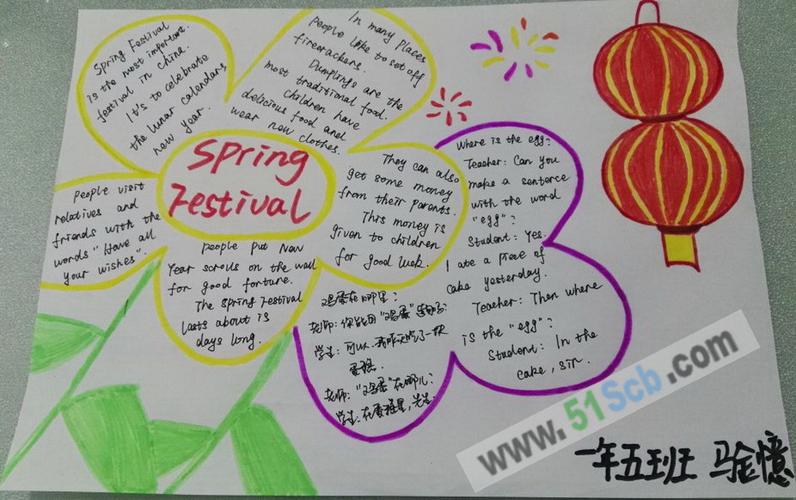 Spring Festival
Spring Festival
is the most important
festival in China.
It's to celebrate
the lunar calendars
new year.
In many places
people like to set off
firecrackers.
Dumplings are the
most traditional food.
Children have
delicious food and
wear new clothes.
They can also
get some money
from their parents.
This money is
given to children
for good luck.
People visit
relatives and
friends with the
words "Have all
your wishes".
people put New
Year scrolls on the wall
for good fortune.
The Spring Festival
lasts about is
days long.
Where is the egg?
Teacher: Can you
make a sentence
with the word
"egg"?
Student: Yes.
I ate a piece of
cake yesterday.
Teacher: Then where
is the "egg"?
Student: In the
cake, sir.
鸡蛋在哪里?
老师:你能用"鸡蛋"造句吗?
学生:可以,我昨天吃了一块
蛋糕.
老师:"鸡蛋"在哪儿?
学生:在蛋糕里,先生.
www.51Scb.com
一年五班 马金憶